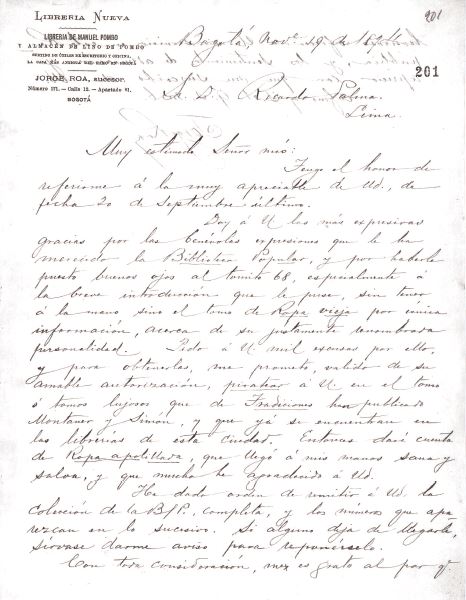 LIBRERIA NUEVA
LIBRERIA DE MANUEL POMBO
Y ALMACÉN DE LINO DE POMBO
SURTIDO DE ÚTILES DE ESCRITORIO Y OFICINA
LA CASA MÁS ANTIGUA DEL RAMO EN BOGOTÁ
JORGE ROA, sucesor.
Número 271.—Calle 12.—Apartado 81.
BOGOTÁ
201
201
Bogotá Nove. 19 de 1894
Sr. D. Ricardo Palma
Lima.
Muy estimado Señor mío:
Tengo el honor de
referirme á la muy apreciable de Ud., de
fecha 20 de Septiembre último.
Doy á U las más expresivas
gracias por las benévolas expresiones que le ha
merecido la Biblioteca Popular, y por haberle
puesto buenos ojos al tomito 68, especialmente á
la breve introducción que le puse, sin tener
á la mano, sino el tomo de Ropa vieja por única
información, acerca de su justamente renombrada
personalidad. Pido á U mil excusas por ello,
y para obtenerlas, me prometo, valido de su
amable autorización, piratear á U en el tomo
ó tomos lujosos que de Tradiciones han publicado
Montaner y Simón, y que ya se encuentran en
las librerías de esta Ciudad. Entonces daré cuenta
de Ropa apolillada, que llegó á mis manos sana y
salva, y que mucho he agradecido á Ud.
He dado orden de remitir á Ud. la
Colección de la B/P. completa, y los números que apa
rezcan en lo sucesivo. Si alguno deja de llegarle,
sírvase darme aviso para reponérselo.
Con toda consideración, me es grato al par q.